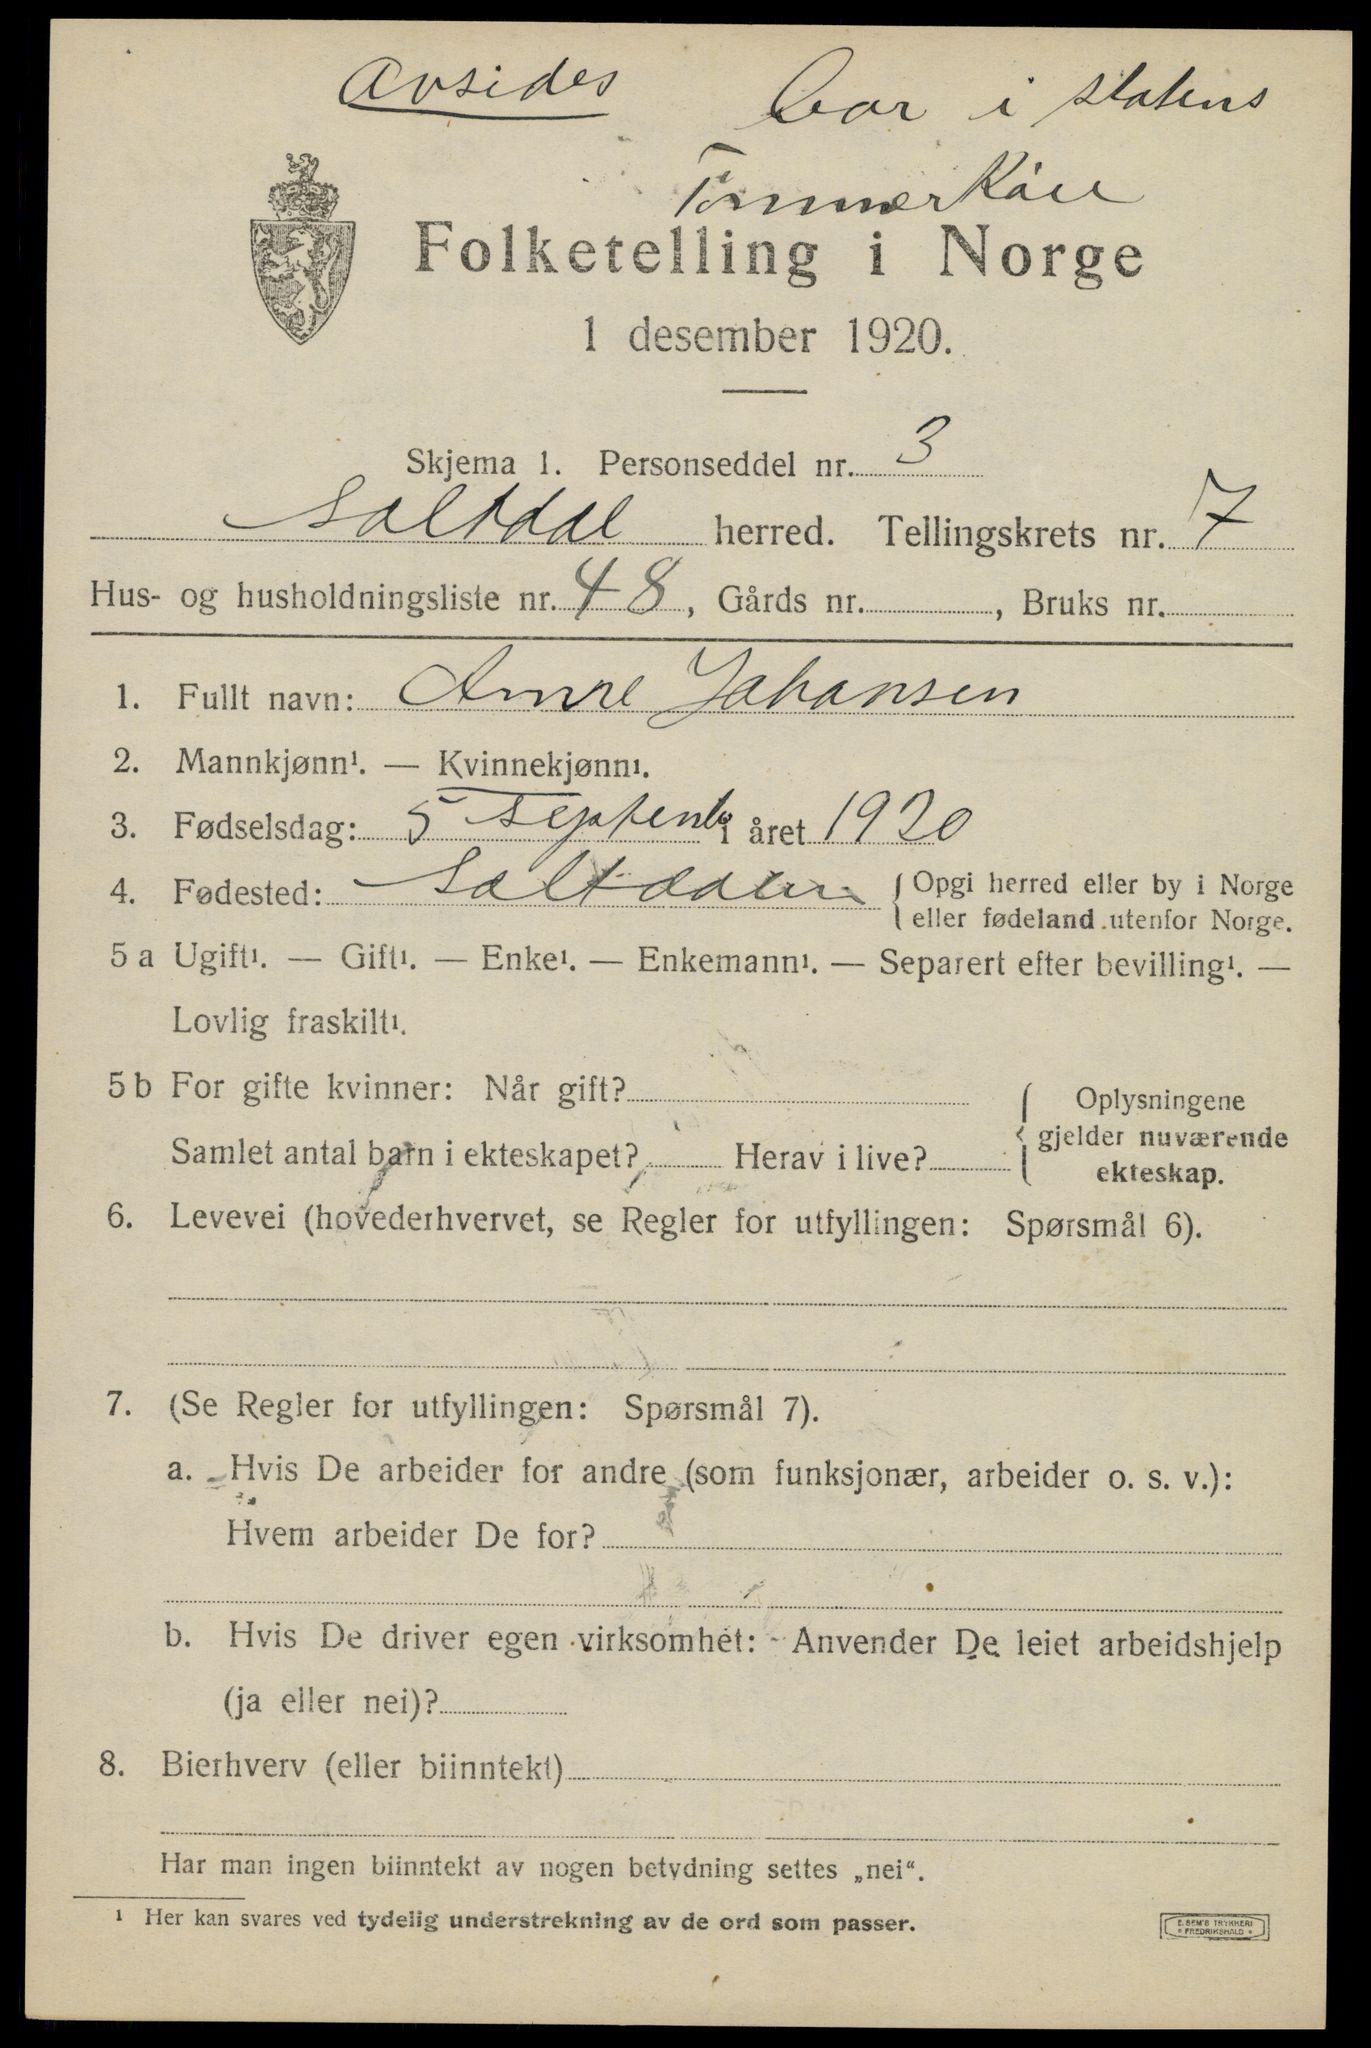 Avsides Bor i statens
Tømmerkoie
Folketelling i Norge
1 desember 1920.
Skjema 1. Personseddel nr. 3
Saltdal herred. Tellingskrets nr. 7
Hus- og husholdningsliste nr. 48, Gårds nr. , Bruks nr.
1. Fullt navn: Johansen
2. Mannkjønn¹. — Kvinnekjønn¹.
3. Fødselsdag: 5 Septemb i året 1920
4. Fødested: Saltdalen { Opgi herred eller by i Norge
eller fødeland utenfor Norge.
5 a Ugift¹. — Gift¹. — Enke¹. — Enkemann¹. — Separert efter bevilling¹. —
Lovlig fraskilt¹.
5 b For gifte kvinner: Når gift?
Samlet antal barn i ekteskapet? Herav i live?
{ Oplysningene
gjelder nuværende
ekteskap.
6. Levevei (hovederhvervet, se Regler for utfyllingen: Spørsmål 6).
7. (Se Regler for utfyllingen: Spørsmål 7).
a. Hvis De arbeider for andre (som funksjonær, arbeider o. s. v.):
Hvem arbeider De for?
b. Hvis De driver egen virksomhet: Anvender De leiet arbeidshjelp
(ja eller nei)?
8. Bierhverv (eller biinntekt)
Har man ingen biinntekt av nogen betydning settes „nei“.
¹ Her kan svares ved tydelig understrekning av de ord som passer.
E. SEM'S TRYKKERI
FREDRIKSHALD